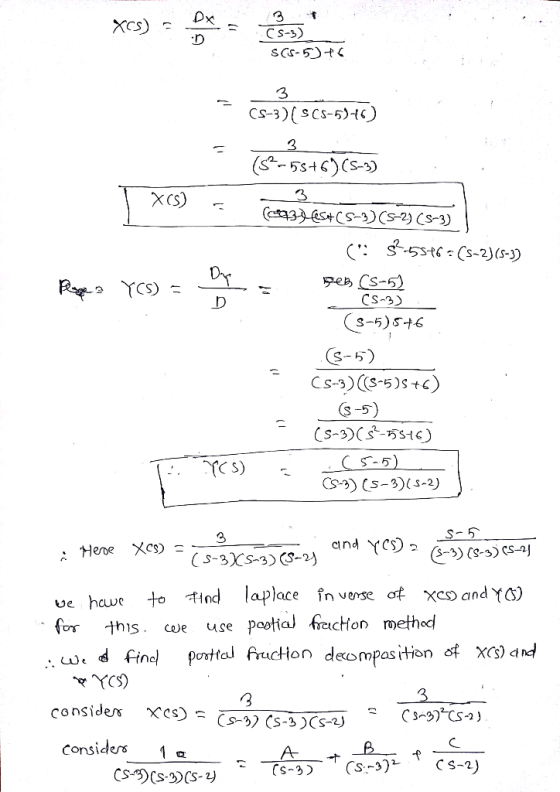 X(s) = Dx/D = (3/(s-3))/(s(s-5)+6)
= 3/((s-3)(s(s-5)+6))
= 3/((s²-5s+6)(s-3))
X(s) = 3/((s-3)(s-2)(s-3))
(∵ s²-5s+6 = (s-2)(s-3)
Y(s) = Dy/D = ((s-5)/(s-3))/((s-5)s+6)
= (s-5)/((s-3)((s-5)s+6))
= (s-5)/((s-3)(s²-5s+6))
∴ Y(s) = (s-5)/((s-3)(s-3)(s-2))
∴ Here X(s) = 3/((s-3)(s-3)(s-2)) and Y(s) = s-5/((s-3)(s-3)(s-2))
we have to find laplace inverse of X(s) and Y(s)
for this. we use partial fraction method
∴ We find partial fraction decomposition of X(s) and
Y(s)
consider X(s) = 3/((s-3)(s-3)(s-2)) = 3/((s-3)²(s-2))
consider 1/((s-3)(s-3)(s-2)) = A/(s-3) + B/(s-3)² + C/(s-2)